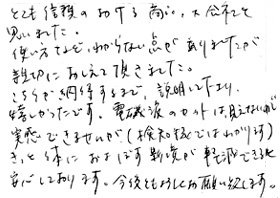 とても信頼のおける商い、大会社と
思いました。
使い方など、わからない点がありましたが
親切におしえて頂きました。
こちらが納得するまで、説明して下り
嬉しかったです。電磁波のカットは見えないので
実感できませんが(検知板ではわかります)
きっと体におよぼす影響が軽減できると
安心しております。今後ともよろしくお願い致します。